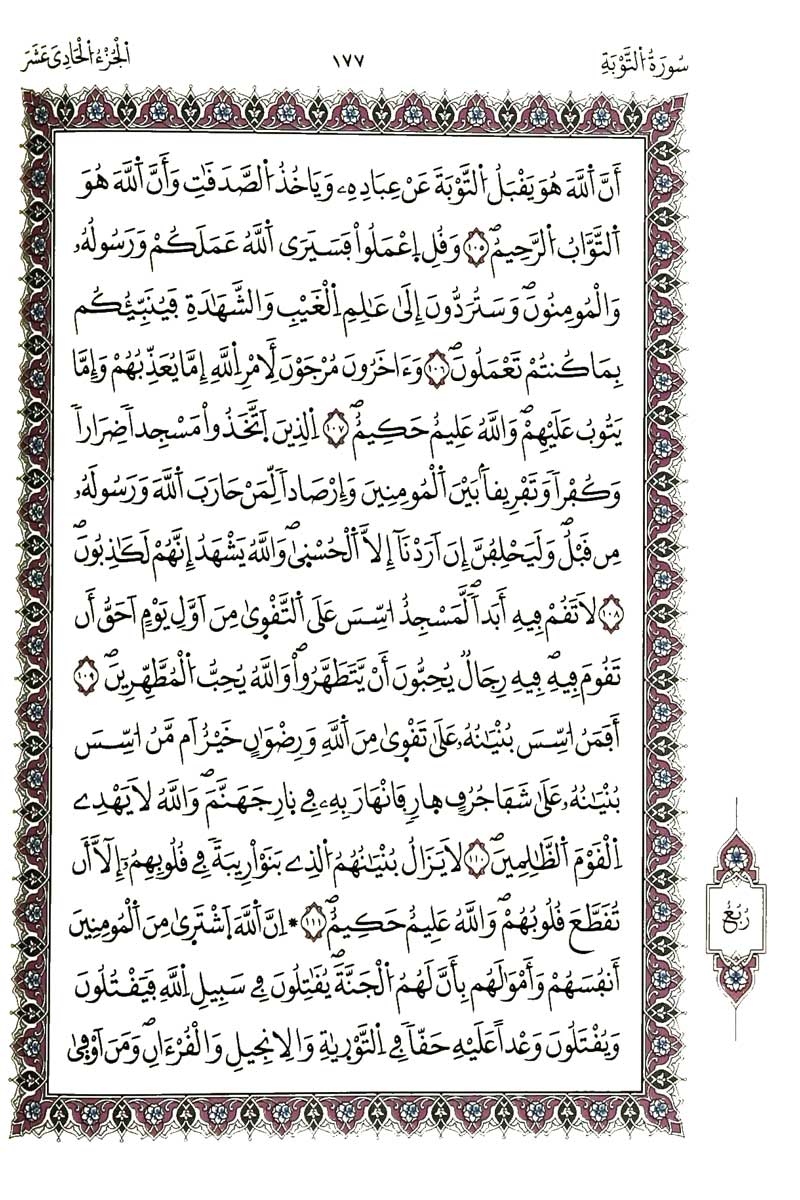 سُورَةُ اُ۬لتَّوْبَةِ
١٧٧
اَ۬لْجُزْءُ اُ۬لْحَادِي عَشَرَ
أَنَّ اَ۬للَّهَ هُوَ يَقْبَلُ اُ۬لتَّوْبَةَ عَنْ عِبَادِهِۦ وَيَاخُذُ اُ۬لصَّدَقَٰتِ وَأَنَّ اَ۬للَّهَ هُوَ
اَ۬لتَّوَّابُ اُ۬لرَّحِيمُۖ ١٠٥ وَقُلِ اِ۪عْمَلُواْ فَسَيَرَى اَ۬للَّهُ عَمَلَكُمْ وَرَسُولُهُۥ
وَالْمُومِنُونَۖ وَسَتُرَدُّونَ إِلَىٰ عَٰلِمِ اِ۬لْغَيْبِ وَالشَّهَٰدَةِ فَيُنَبِّئُكُم
بِمَا كُنتُمْ تَعْمَلُونَۖ ١٠٦ وَءَاخَرُونَ مُرْجَوْنَ لِأَمْرِ اِ۬للَّهِ إِمَّا يُعَذِّبُهُمْ وَإِمَّا
يَتُوبُ عَلَيْهِمْۖ وَاللَّهُ عَلِيمٌ حَكِيمٌۖ ١٠٧ اِ۬لذِينَ اَ۪تَّخَذُواْ مَسْجِداٗ ضِرَاراٗ
وَكُفْراٗ وَتَفْرِيقاَۢ بَيْنَ اَ۬لْمُومِنِينَ وَإِرْصَاداٗ لِّمَنْ حَارَبَ اَ۬للَّهَ وَرَسُولَهُۥ
مِن قَبْلُۖ وَلَيَحْلِفُنَّ إِنَ اَرَدْنَآ إِلَّا اَ۬لْحُسْنۭيٰۖ وَاللَّهُ يَشْهَدُ إِنَّهُمْ لَكَٰذِبُونَۖ
١٠٨ لَا تَقُمْ فِيهِ أَبَداٗۖ لَّمَسْجِدٌ ا۟سِّسَ عَلَى اَ۬لتَّقْوۭيٰ مِنَ اَوَّلِ يَوْمٍ اَحَقُّ أَن
تَقُومَ فِيهِۖ فِيهِ رِجَالٞ يُحِبُّونَ أَنْ يَّتَطَهَّرُواْۖ وَاللَّهُ يُحِبُّ اُ۬لْمُطَّهِّرِينَۖ ١٠٩
أَفَمَنُ ا۟سِّسَ بُنْيَٰنُهُۥ عَلَىٰ تَقْوۭيٰ مِنَ اَ۬للَّهِ وَرِضْوَٰنٍ خَيْرٌ اَم مَّنُ ا۟سِّسَ
بُنْيَٰنُهُۥ عَلَىٰ شَفَا جُرُفٍ هۭارٖ فَانْهَارَ بِهِۦ فِي نۭارِ جَهَنَّمَۖ وَاللَّهُ لَا يَهْدِے
اِ۬لْقَوْمَ اَ۬لظَّٰلِمِينَۖ ١١٠ لَا يَزَالُ بُنْيَٰنُهُمُ اُ۬لذِے بَنَوْاْ رِيبَةٗ فِي قُلُوبِهِمُۥٓ إِلَّآ أَن
تُقَطَّعَ قُلُوبُهُمْۖ وَاللَّهُ عَلِيمٌ حَكِيمٌۖ ١١١ ۞ اِنَّ اَ۬للَّهَ اَ۪شْتَرۭيٰ مِنَ اَ۬لْمُومِنِينَ
أَنفُسَهُمْ وَأَمْوَٰلَهُم بِأَنَّ لَهُمُ اُ۬لْجَنَّةَۖ يُقَٰتِلُونَ فِي سَبِيلِ اِ۬للَّهِ فَيَقْتُلُونَ
وَيُقْتَلُونَ وَعْداً عَلَيْهِ حَقّاٗ فِي اِ۬لتَّوْرۭيٰةِ وَالِانجِيلِ وَالْقُرْءَانِۖ وَمَنَ اَوْفۭيٰ
رُبْعُ